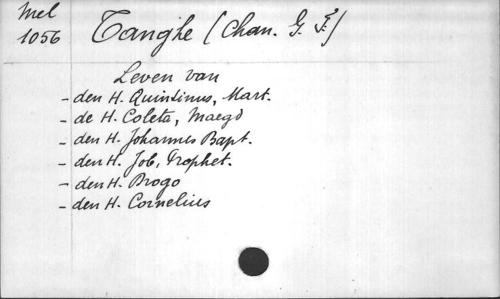 Mel
1056
Tanghe (Chan. G. F.)
Leven van
- den H. Quintinus, Mart.
- de H. Coleta, Maegd
- den H. Johannes Bapt.
- den H. Job, Prophet.
- den H. Drogo
- den H. Cornelius